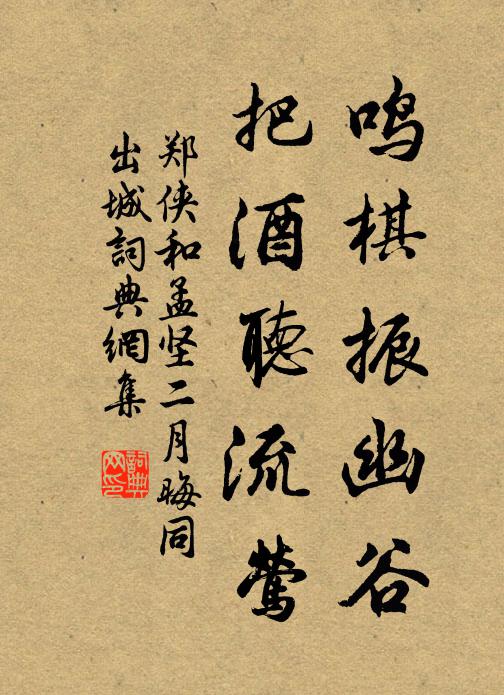 鸣棋振幽谷
把酒聽流莺
郑侠和孟坚二月晦同
出城詞典網集
詞典网印